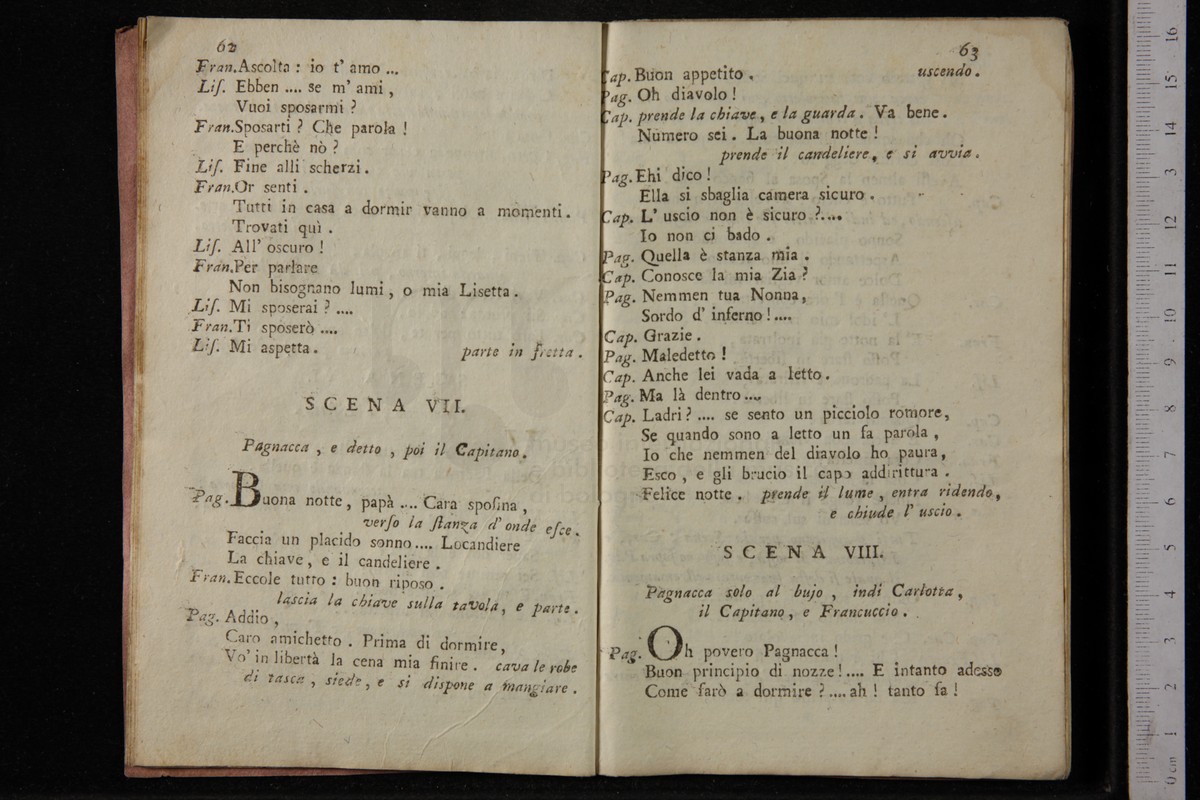 62
Fran. Ascolta : io t' amo ...
Liſ. Ebben .... se m' ami ,
Vuoi sposarmi ?
Fran. Sposarti ? Che parola !
E perchè nò ?
Liſ. Fine alli scherzi .
Fran. Or senti .
Tutti in casa a dormir vanno a momenti .
Trovati quì .
Liſ. All' oscuro !
Fran. Per parlare
Non bisognano lumi , o mia Lisetta .
Liſ. Mi sposerai ? ....
Fran. Ti sposerò ....
Liſ. Mi aspetta . parte in fretta .
SCENA VII.
Pagnacca , e detto , poi il Capitano .
Pag. Buona notte , papà .... Cara spoſina ,
verſo la ſtanza d' onde eſce .
Faccia un placido sonno .... Locandiere
La chiave , e il candeliere .
Fran. Eccole tutto : buon riposo .
lascia la chiave sulla tavola , e parte .
Pag. Addio ,
Caro amichetto . Prima di dormire ,
Vo' in libertà la cena mia finire . cava le robe
di tasca , siede , e si dispone a mangiare .
63
Cap. Buon appetito . uscendo .
Pag. Oh diavolo !
Cap. prende la chiave , e la guarda . Va bene .
Numero sei . La buona notte !
prende il candeliere , e si avvia .
Pag. Ehi dico !
Ella si sbaglia camera sicuro .
Cap. L' uscio non è sicuro ? ....
Io non ci bado .
Pag. Quella è stanza mia .
Cap. Conosce la mia Zia ?
Pag. Nemmen tua Nonna ,
Sordo d' inferno ! ....
Cap. Grazie .
Pag. Maledetto !
Cap. Anche lei vada a letto .
Pag. Ma là dentro ....
Cap. Ladri ? .... se sento un picciolo romore ,
Se quando sono a letto un fa parola ,
Io che nemmen del diavolo ho paura ,
Esco , e gli brucio il capo addirittura .
Felice notte . prende il lume , entra ridendo ,
e chiude l' uscio .
SCENA VIII.
Pagnacca solo al bujo , indi Carlotta ,
il Capitano , e Francuccio .
Pag. Oh povero Pagnacca !
Buon principio di nozze ! .... E intanto adesso
Come farò a dormire ? .... ah ! tanto fa !